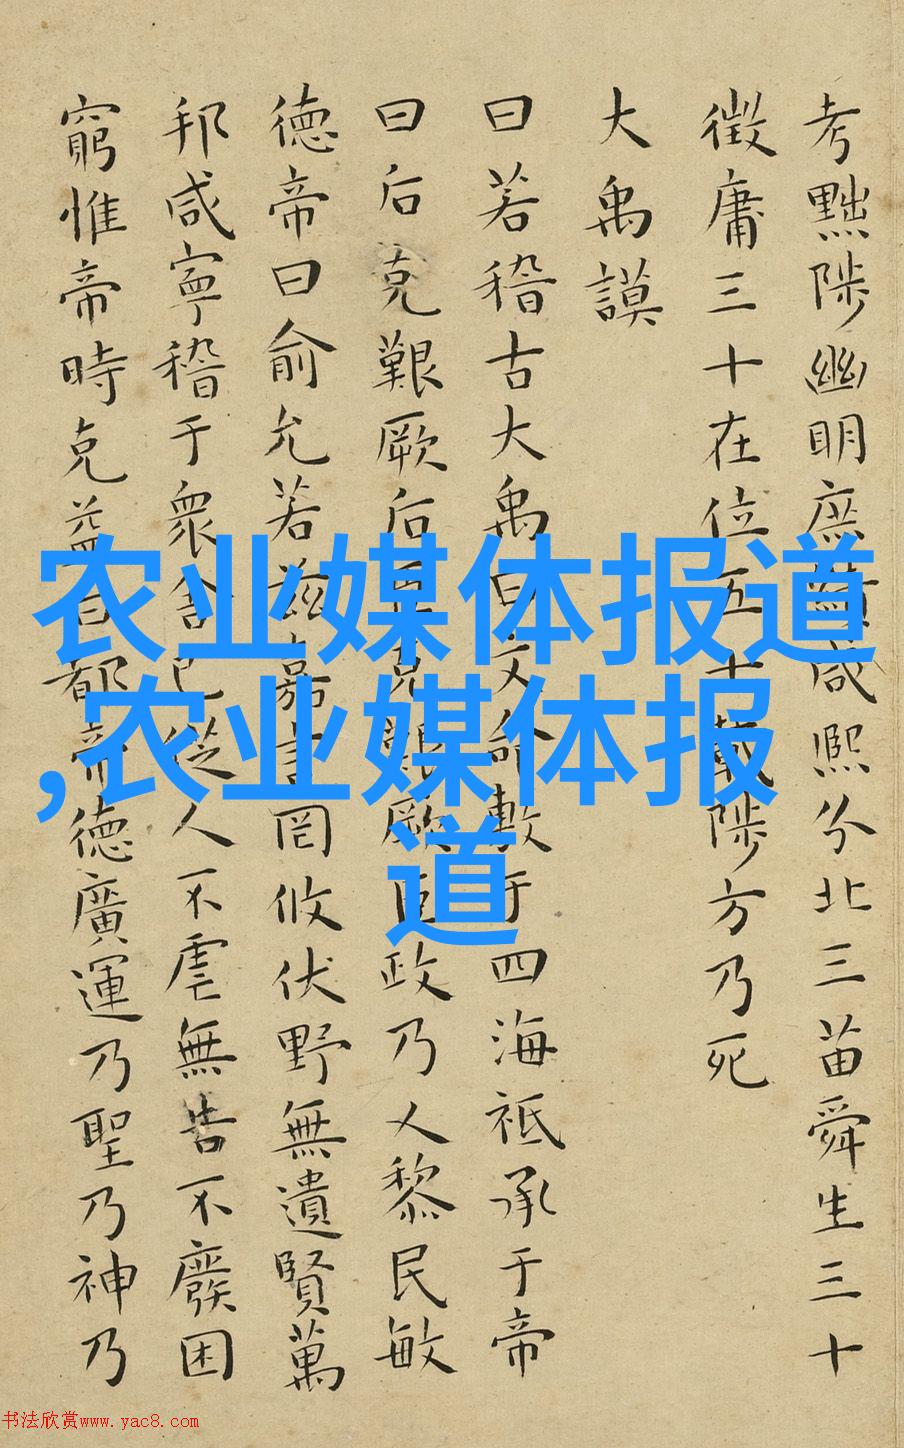 考黜陟幽明庶績咸熙分北三苗舜生三十
徵庸三十在位五十載陟方乃死
大禹謨
曰若稽古大禹曰文命敷于四海祗承于帝
曰后克艱厥后臣克艱厥臣政乃乂黎民敏
德帝曰俞允若茲嘉言罔攸伏野無遺賢萬
邦咸寧稽于眾舍己從人不虐無告不廢困
窮惟帝時克益曰都帝德廣運乃聖乃神乃
农业媒体报道
,农业媒体报
道
书法欣赏www.yac8.com